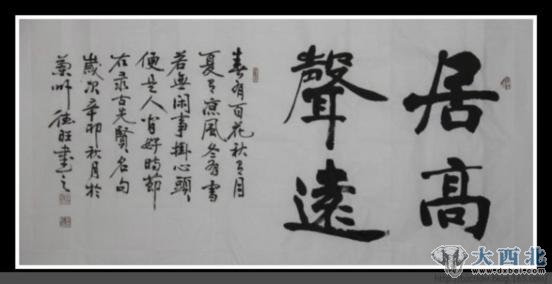 居高
聲遠
春有百花秋有月
夏有凉風冬有雪
若無闲事掛心頭
便是人间好時節
右录古先賢名句
歲次辛卯秋月於
蘭州德旺書之
大西北